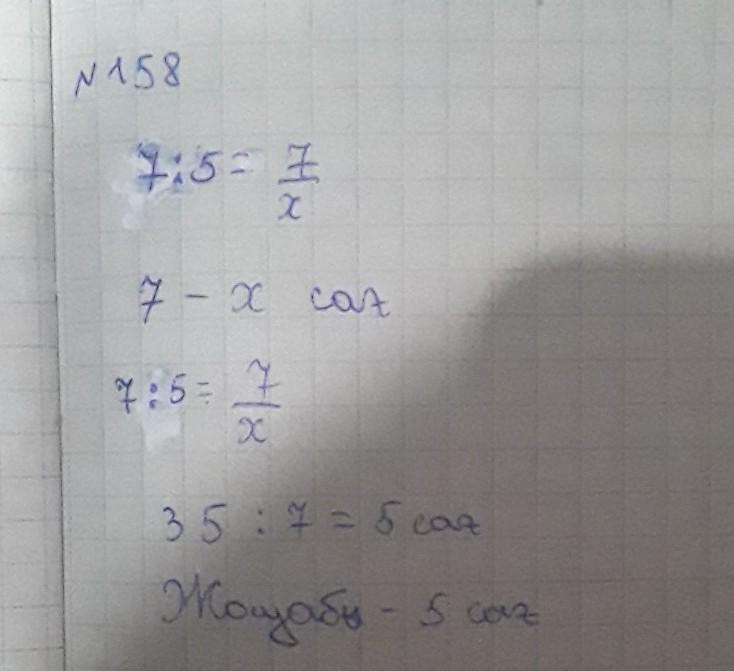 N158
7:5 = 7/x
7 - x саг
7:5 = 7/x
35 : 7 = 5 саг
Жощабы - 5 саг